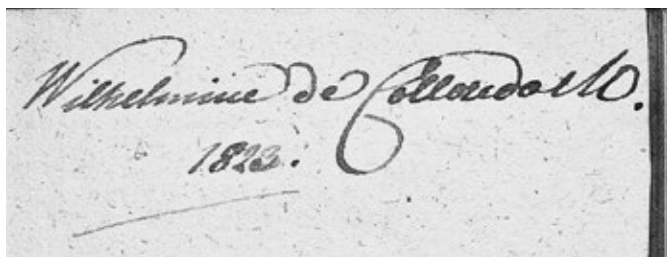 Wilhelmine de Colloredo M.
1823.